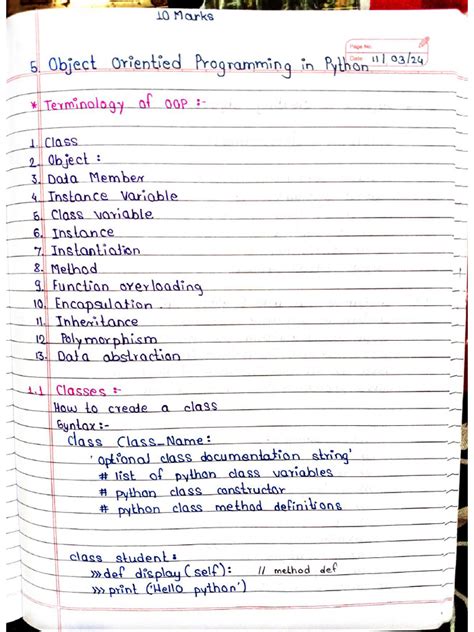 10 Marks
Page No.
Date 11/03/24
5. Object Orientied Programming in Python
* Terminology of OOP :-
1. Class
2. Object :
3. Data Member
4. Instance Variable
5. Class variable
6. Instance
7. Instantiation
8. Method
9. Function overloading
10. Encapsulation.
11. Inheritance
12. Polymorphism
13. Data abstraction
1.1 Classes :-
How to create a class
Syntax:-
class Class_Name:
'optional class documentation string'
# list of python class variables
# python class constructor
# python class method definitions
class student:
>>> def display (self): // method def
>>> print ('Hello python')